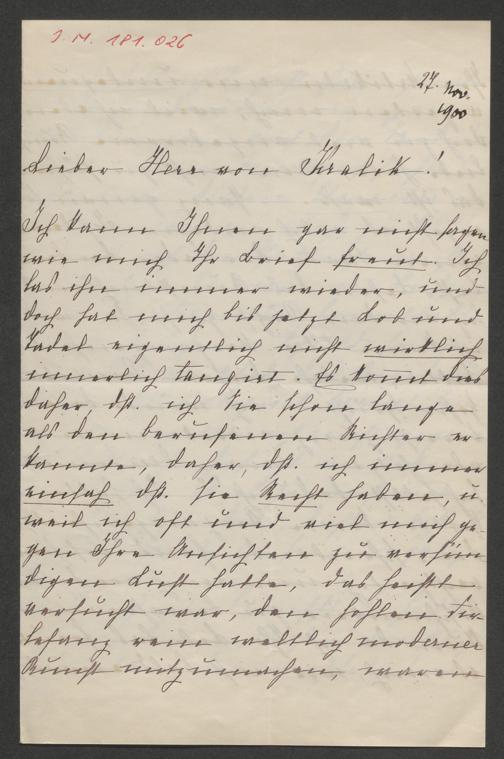 J. N. 181.026
27. Nov.
1900
Lieber Herr von Kralik!
Ich kann Ihnen gar nicht sagen
wie mich Ihr Brief freut. Ich
las ihn immer wieder, und
doch hat mich bis jetzt Lob und
Tadel eigentlich nicht wirklich
innerlich tangirt. Es kommt dies
daher, dß. ich Sie schon lange
als den berufenen Richter er-
kannte, daher, dß. ich immer
einsah dß. sie Recht haben, u.
weil ich oft und viel mich ge-
gen Ihre Ansichten zu versün
digen Lust hatte, das heißt
versucht war, den hohlen Fir-
lefanz rein weltlich moderner
Kunst mitzumachen, waren